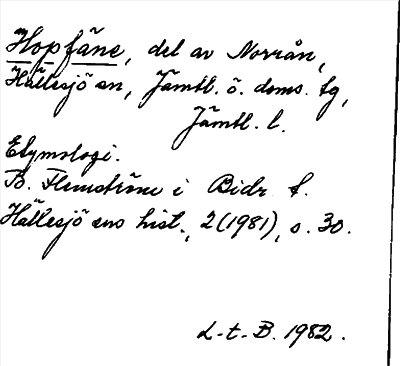 Hopfåne, del av Norrån,
Hällesjö sn, Jämtl. ö. doms. tg,
Jämtl. l.
Etymologi.
B. Flemström i Bidr t.
Hällesjö sns hist., 2(1981), s. 30.
L-t-B. 1982.